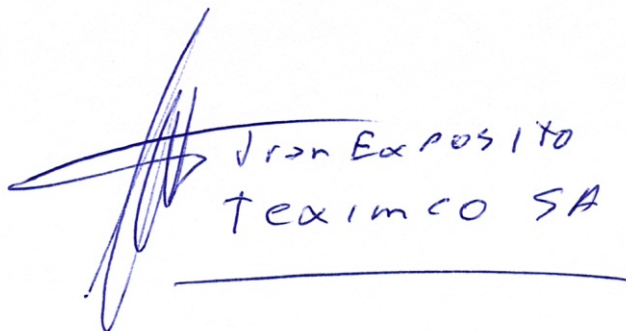 Jran Exposito
Teximco SA